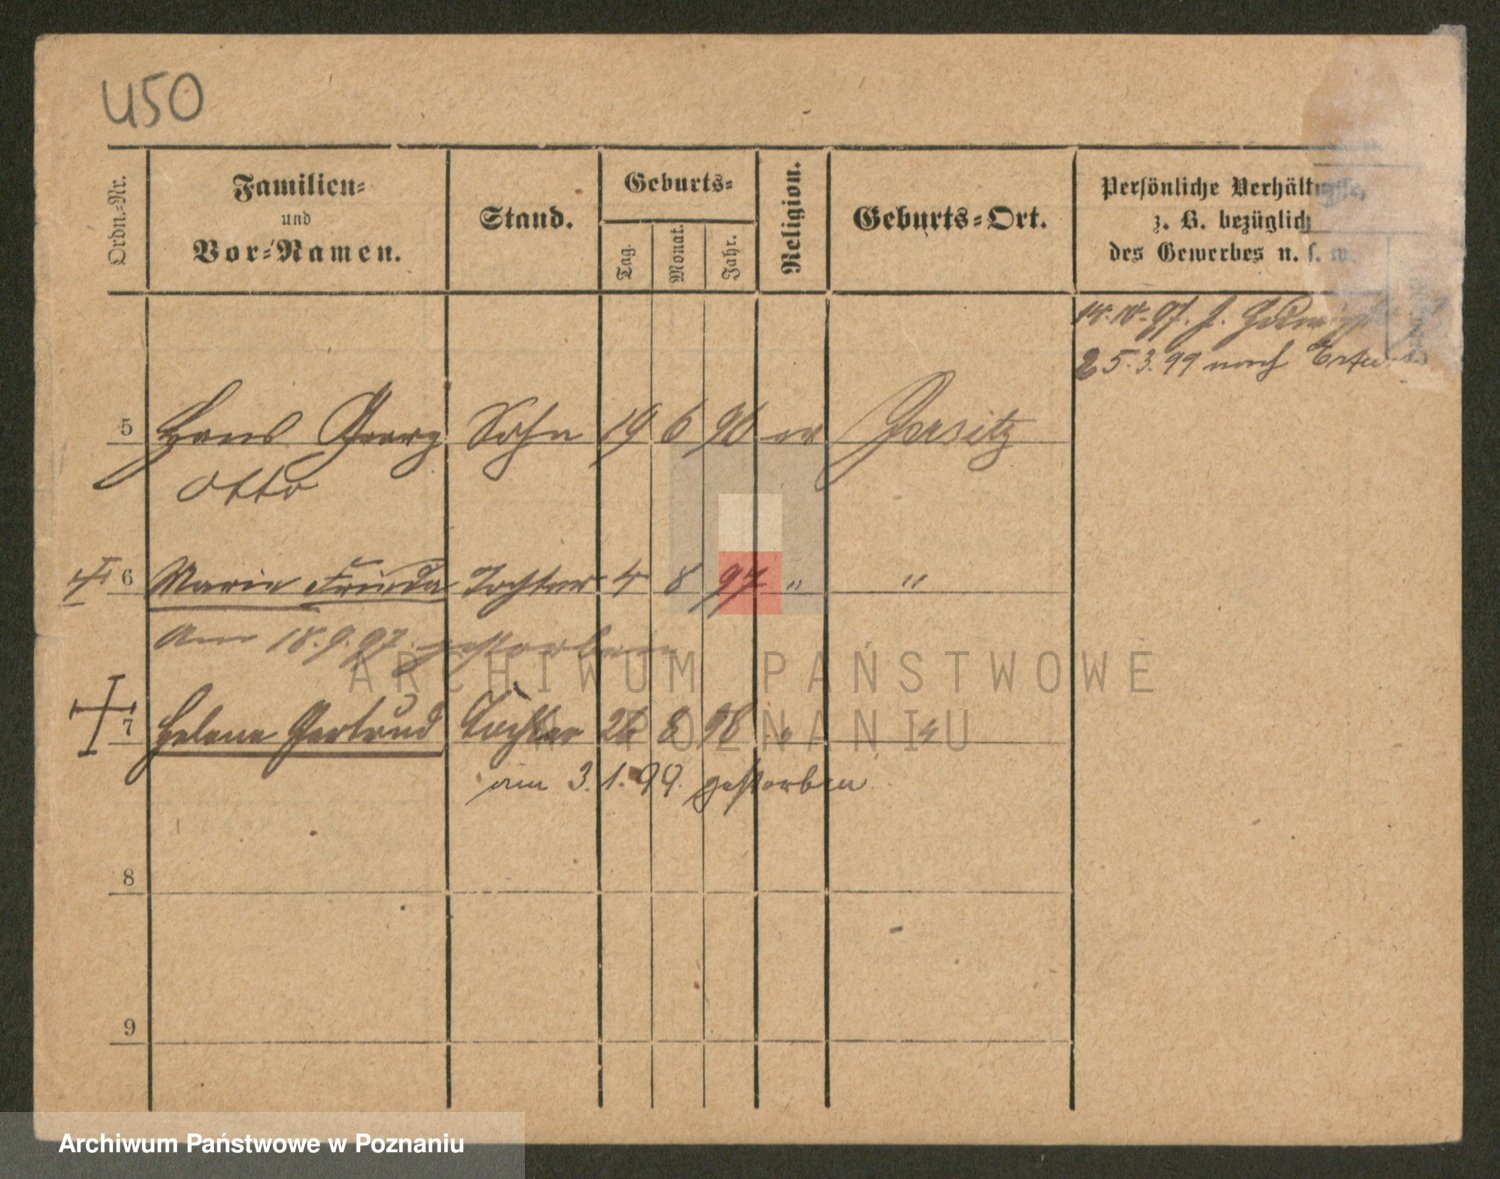 450
Ordn.-Nr.
Familien-
und
Vor-Namen.
Stand.
Geburts-
Tag.
Monat.
Jahr.
Religion.
Geburts-Ort.
Persönliche Verhältnisse,
z. B. bezüglich
des Gewerbes u. s. w.
25.3.99 nach
5 Hans Georg Sohn 19 6 96 ev Jersitz
Otto
6 Marie Frieda Tochter 4 8 97 " "
Am 18.9.97 gestorben
7 Helene Gertrud Tochter 26 8 98 " "
am 3.1.99. gestorben
8
9
ARCHIWUM PAŃSTWOWE
W POZNANIU
Archiwum Państwowe w Poznaniu